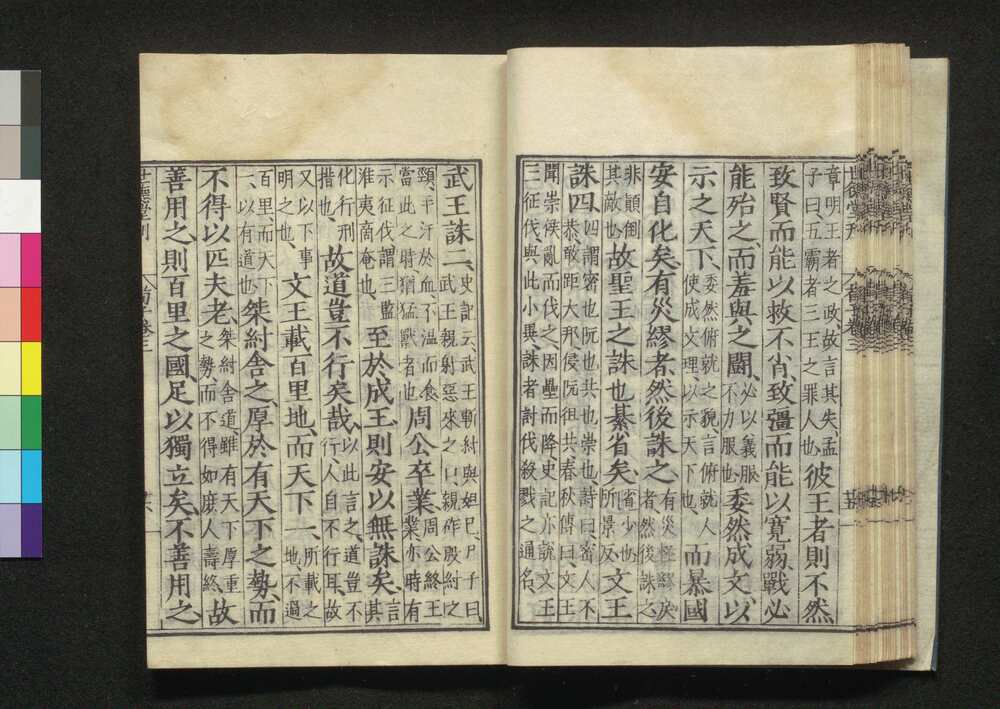 章明王者之政故言其失孟
子曰五霸者三王之罪人也
彼王者則不然
致賢而能以救不肖致彊而能以寬弱戰必
能殆之而羞與之鬭
必以義服
不力服也
委然成文以
示之天下
委然俯就之貌言俯就人
使成文理以示天下也
而暴國
安自化矣有災繆者然後誅之
有災怪繆戾
者然後誅之
非顛倒
其敵也
故聖王之誅也綦省矣
省少也
所景反
文王
誅四
四謂密也阮也共也崇也詩曰密人不
恭敢距大邦侵阮徂共春秋傳曰文王
聞崇侯亂而伐之因壘而降史記亦說文王
三征伐與此小異誅者討伐殺戮之通名
武王誅二
史記云武王斬紂與妲己尸子曰
武王親射惡來之口親斫殷紂之
頸手汙於血不温而食
當此之時猶猛獸者也
周公卒業
周公終王
業亦時有
示征伐謂三監
淮夷商奄也
至於成王則安以無誅矣
言
其
化行刑
措也
故道豈不行矣哉
以此言之道豈不
行人自不行耳故
又以下事
明之也
文王載百里地而天下一
所載之
地不過
百里而天下
一以有道也
桀紂舍之厚於有天下之勢而
不得以匹夫老
桀紂舍道雖有天下厚重
之勢而不得如庶人壽終
故
善用之則百里之國足以獨立矣不善用之